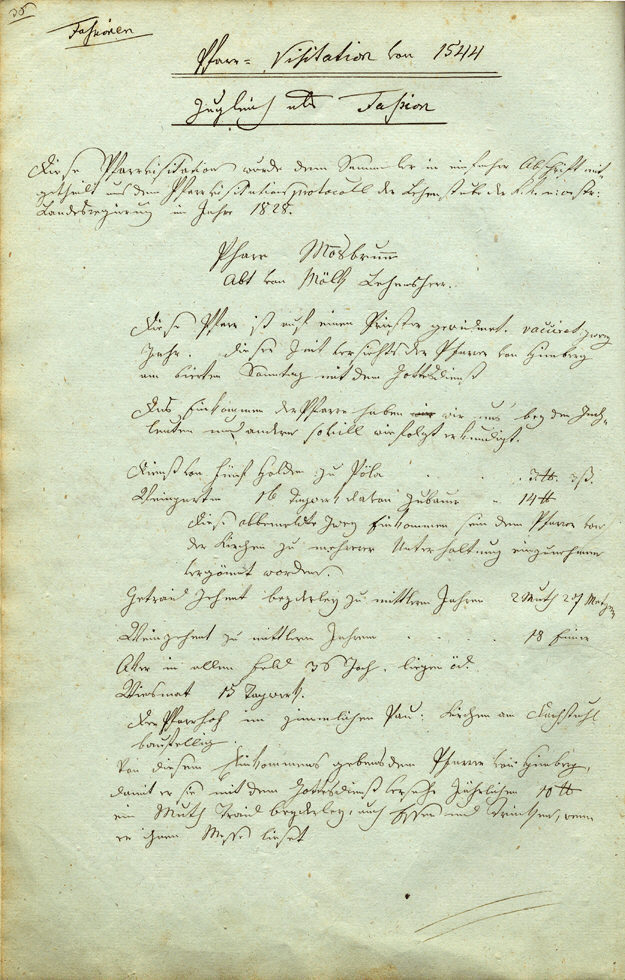 35
Fassionen
Pfarr= Visitation von 1544
zugleich als Fassion
Diese Pfarrvisitation wurde dem Sammler in einfacher Abschrift mit=
getheilt aus dem Pfarrvisitationsprotocoll der Lehenstube der k.k. n: oestr:
Landesregierung im Jahre 1828.
Pfarr Mosbrunn
Abt von Mölk Lehensherr.
Diese Pfarr ist auf einen Priester gewidmet. vaciret zwey
Jahr. Diese Zeit versichts der Pfarrer von Himberg
am vierten Sonntag mit dem Gottesdienst
Das Einkommen der Pfarre haben wir uns bey den Zech=
leuten und andern sovill wie folgt erkundigt.
Dienst von fünf Holden zu
Weingarten 16 Tagwerk davon 14 ℔
Diese obbemeldte zwey Einkommen sein dem Pfarrer von
der Kirchen zu mehrerer Unterhaltung einzunehmen
vergönnt worden.
Getraid Zehent beyderley zu mittlern Jahren 2 Muth 27 Metzen
Weinzehent zu mittlern Jahren 18 Eimer
Aker in allen Feld 36 Joch. liegen öd.
Wiesmat 15 Tagwerk.
Der Pfarrhof im zimmlichen Pau: Kirchen am Dachstuhl
baufellig.
Von diesem Einkommens gebens dem Pfarrer von Himberg,
damit er sie mit dem Gottesdienst versehe Jährlichen 10 ℔
ein Muth Traid beyderley, auch Essen und Trinkhen, wenn
er ihnen Messe lieset